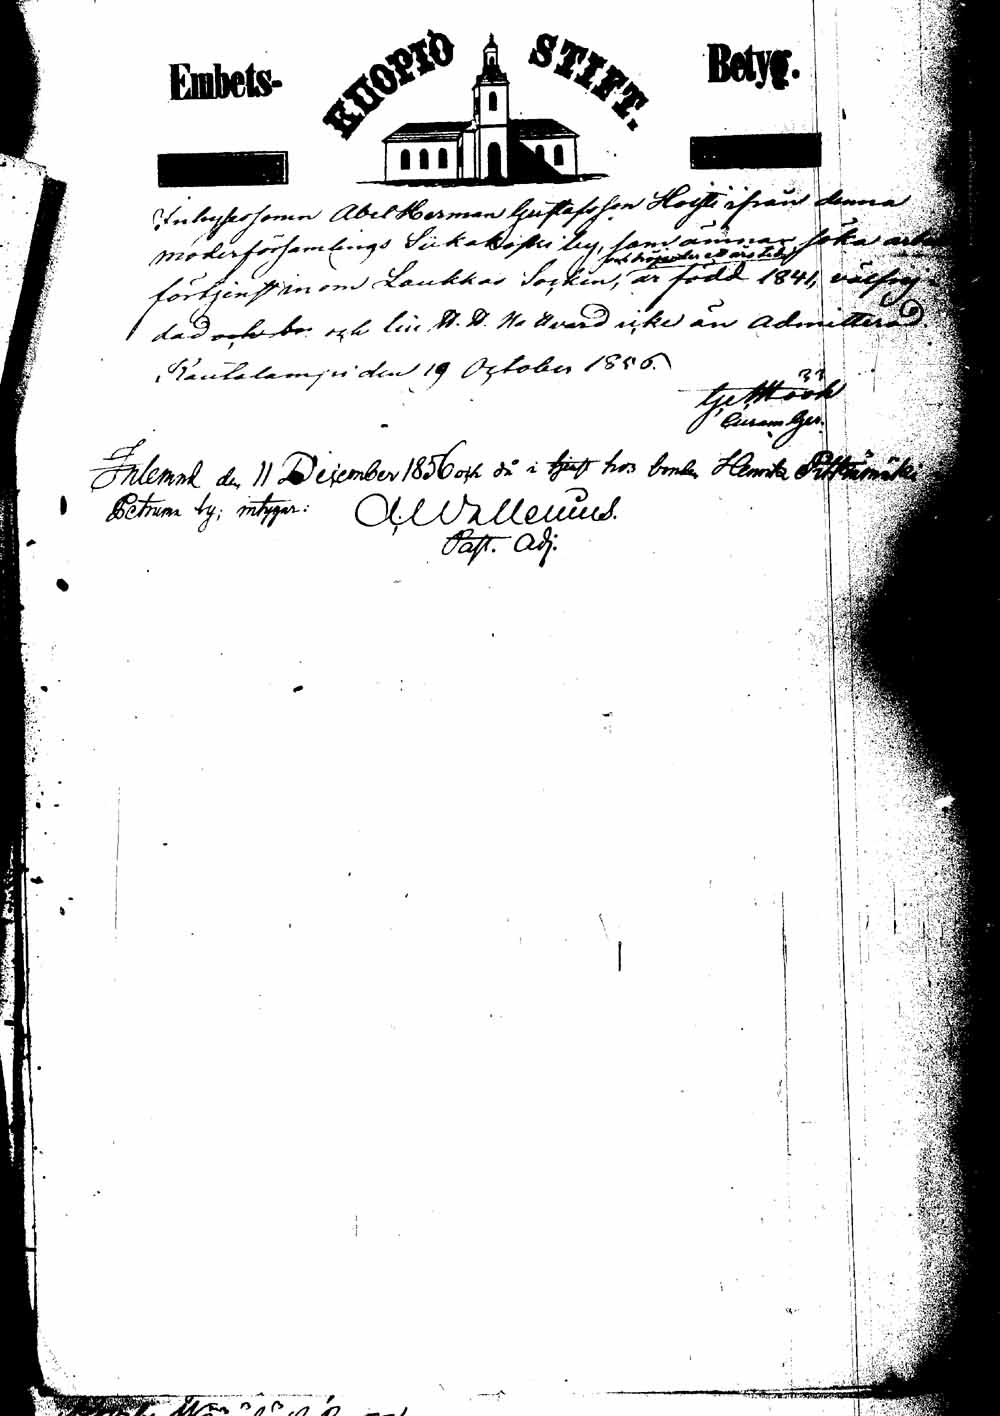 Embets- KUOPIO STIFT. Betyg.
Inhyseson Abel Herman Gustafsson Höyti ifrån denna
moderförsamlings Siikakoski by, som ämnar söka arbets
förtjenst inom Laukkas Socken, är född 1841, välfrej-
dad och bo och lin H. H. Na Nvard icke än admitterad.
Rautalampi den 19 October 1856.
Curam Ger.
Inlemnd den 11 December 1856 och då i tjenst hos bonden Henrik
Petruma by; intygar:
Wallenius.
Past. Adj.